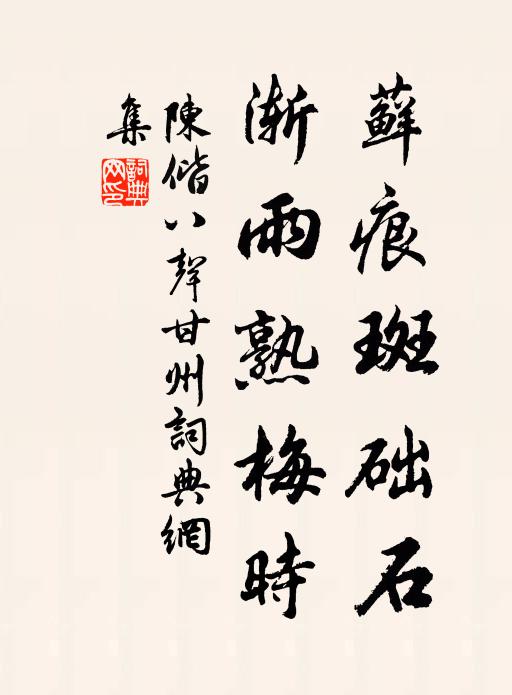 蘚痕斑础石
漸雨熟梅時
陳偕八聲甘州詞典網
集
詞典網印